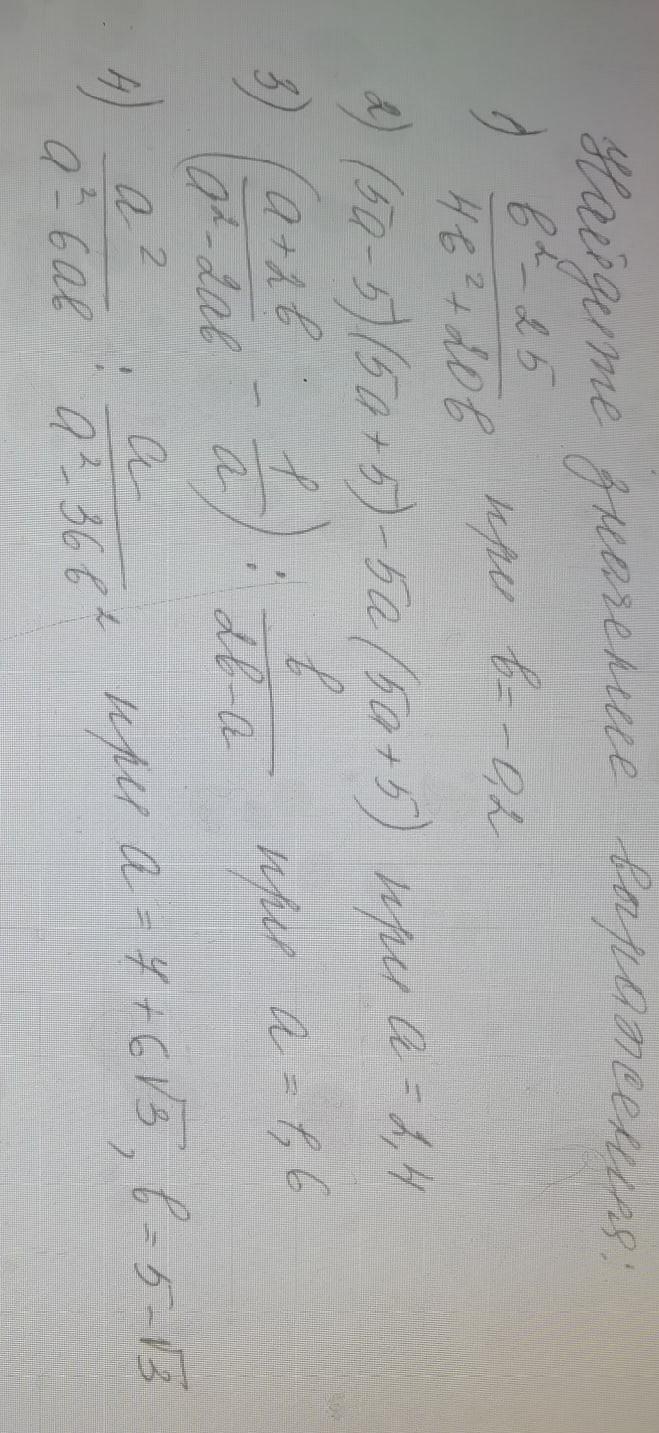 Найдите значение выражения:
1) (b² - 25)/(4b² + 20b) при b = -0,2
2) (5a - 5)(5a + 5) - 5a(5a + 5) при a = 2,4
3) ((a + 2b)/(a² - 2ab) - 1/a) : b/(2b - a) при a = 1,6
4) a²/(a² - 6ab) : a/(a² - 36b²) при a = 4 + 6√3, b = 5 - √3